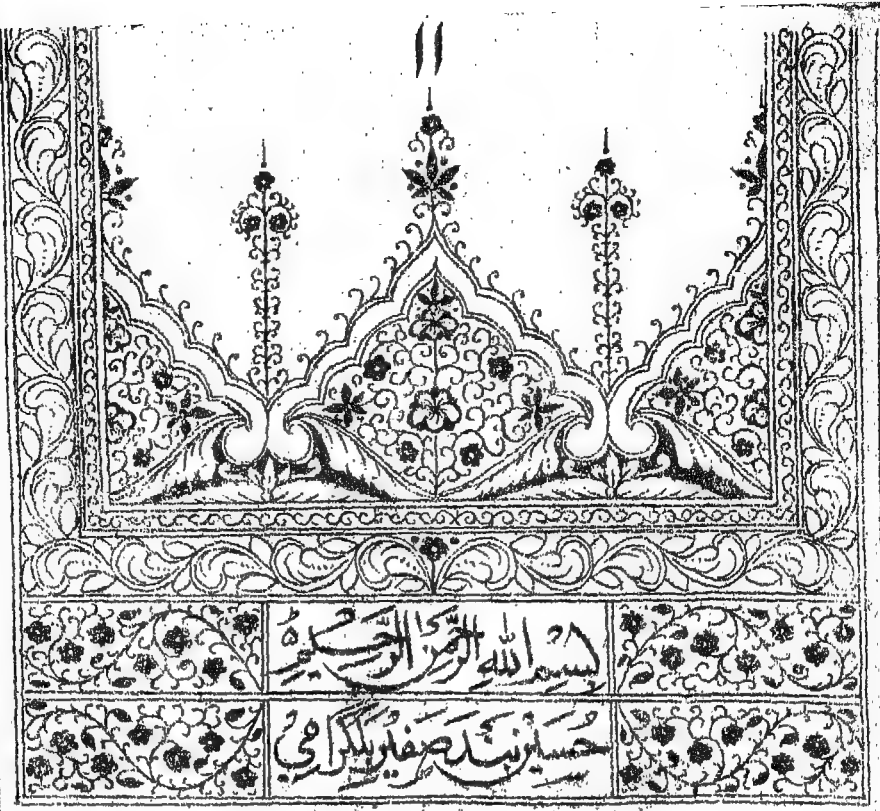 اا
بسم الله الرحمن الرحيم
حسین بند صفیر بلگرامی